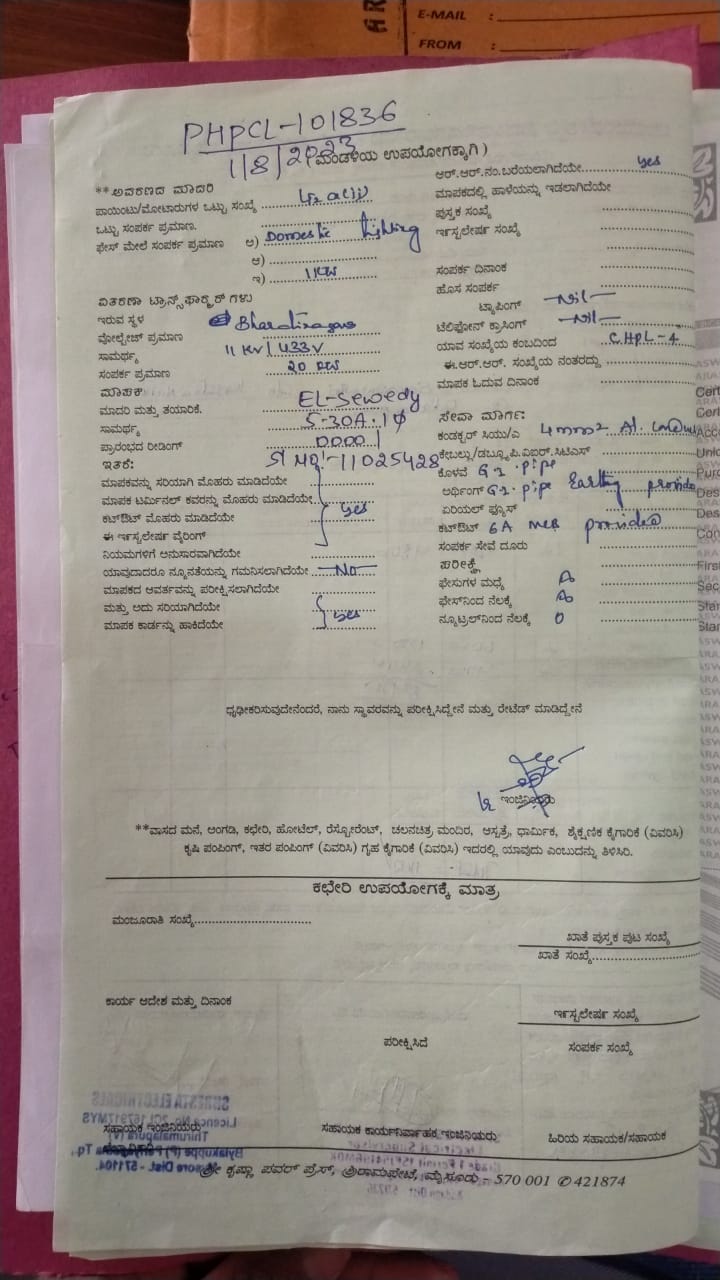 E-MAIL :
FROM :
PHPCL-101836
1/8/2023
(ಮಂಡಳಿಯ ಉಪಯೋಗಕ್ಕಾಗಿ)
**ಆವರಣದ ಮಾದರಿ
ಪಾಯಿಂಟು/ಮೋಟಾರುಗಳ ಒಟ್ಟು ಸಂಖ್ಯೆ
ಒಟ್ಟು ಸಂಪರ್ಕ ಪ್ರಮಾಣ.
ಫೇಸ್ ಮೇಲೆ ಸಂಪರ್ಕ ಪ್ರಮಾಣ ಅ) Domestic lighting
ಆ)
ಇ) 1 KW
ವಿತರಣಾ ಟ್ರಾನ್ಸ್‌ಫಾರ್ಮರ್‌ಗಳು
ಇರುವ ಸ್ಥಳ
ವೋಲ್ಟೇಜ್ ಪ್ರಮಾಣ 11 KV / 433V
ಸಾಮರ್ಥ್ಯ
ಸಂಪರ್ಕ ಪ್ರಮಾಣ 20
ಮಾಪಕ
ಮಾದರಿ ಮತ್ತು ತಯಾರಿಕೆ. EL-Sewedy
ಸಾಮರ್ಥ್ಯ 5-30A. 1Φ
ಪ್ರಾರಂಭದ ರೀಡಿಂಗ್ 0000 1
ಇತರೆ: Sl No:-11025428
ಮಾಪಕವನ್ನು ಸರಿಯಾಗಿ ಮೊಹರು ಮಾಡಿದೆಯೇ
ಮಾಪಕ ಟರ್ಮಿನಲ್ ಕವರನ್ನು ಮೊಹರು ಮಾಡಿದೆಯೇ
ಕಟ್‌ಔಟ್ ಮೊಹರು ಮಾಡಿದೆಯೇ yes
ಈ ಇರ್ಸ್ಟಲೇಷನ್ ವೈರಿಂಗ್
ನಿಯಮಗಳಿಗೆ ಅನುಸಾರವಾಗಿದೆಯೇ
ಯಾವುದಾದರೂ ನ್ಯೂನತೆಯನ್ನು ಗಮನಿಸಲಾಗಿದೆಯೇ No
ಮಾಪಕದ ಆವರ್ತವನ್ನು ಪರೀಕ್ಷಿಸಲಾಗಿದೆಯೇ
ಮತ್ತು ಅದು ಸರಿಯಾಗಿದೆಯೇ yes
ಮಾಪಕ ಕಾರ್ಡನ್ನು ಹಾಕಿದೆಯೇ
ಆರ್.ಆರ್.ನಂ.ಬರೆಯಲಾಗಿದೆಯೇ yes
ಮಾಪಕದಲ್ಲಿ ಹಾಳೆಯನ್ನು ಇಡಲಾಗಿದೆಯೇ
ಪುಸ್ತಕ ಸಂಖ್ಯೆ
ಇರ್ಸ್ಟಲೇಷನ್ ಸಂಖ್ಯೆ
ಸಂಪರ್ಕ ದಿನಾಂಕ
ಹೊಸ ಸಂಪರ್ಕ
ಟ್ಯಾಪಿಂಗ್ -Nil-
ಟೆಲಿಫೋನ್ ಕ್ರಾಸಿಂಗ್ -Nil-
ಯಾವ ಸಂಖ್ಯೆಯ ಕಂಬದಿಂದ CHPL-4
ಈ.ಆರ್.ಆರ್. ಸಂಖ್ಯೆಯ ನಂತರದ್ದು
ಮಾಪಕ ಓದುವ ದಿನಾಂಕ
ಸೇವಾ ಮಾರ್ಗ:
ಕಂಡಕ್ಟರ್ ಸಿಯು/ಎ 4mm2 Al.
ಕೇಬಲ್ಲು/ಡಬ್ಲ್ಯೂಪಿ.ಐಆರ್.ಸಿಟಿಎಸ್
ಕೊಳವೆ G.I. pipe
ಅರ್ಥಿಂಗ್ G.I. pipe Earthing
ಏರಿಯಲ್ ಫ್ಯೂಸ್
ಕಟ್‌ಔಟ್ 6A MCB provided
ಸಂಪರ್ಕ ಸೇವೆ ದೂರು
ಪರೀಕ್ಷೆ
ಫೇಸುಗಳ ಮಧ್ಯೆ
ಫೇಸ್‌ನಿಂದ ನೆಲಕ್ಕೆ
ನ್ಯೂಟ್ರಲ್‌ನಿಂದ ನೆಲಕ್ಕೆ 0
ಧೃಢೀಕರಿಸುವುದೇನೆಂದರೆ, ನಾನು ಸ್ಥಾವರವನ್ನು ಪರೀಕ್ಷಿಸಿದ್ದೇನೆ ಮತ್ತು ರೇಟೆಡ್ ಮಾಡಿದ್ದೇನೆ
ಇಂಜಿನಿಯರು
**ವಾಸದ ಮನೆ, ಅಂಗಡಿ, ಕಛೇರಿ, ಹೋಟೆಲ್, ರೆಸ್ಟೋರೆಂಟ್, ಚಲನಚಿತ್ರ ಮಂದಿರ, ಆಸ್ಪತ್ರೆ, ಧಾರ್ಮಿಕ, ಶೈಕ್ಷಣಿಕ ಕೈಗಾರಿಕೆ (ವಿವರಿಸಿ)
ಕೃಷಿ ಪಂಪಿಂಗ್, ಇತರ ಪಂಪಿಂಗ್ (ವಿವರಿಸಿ) ಗೃಹ ಕೈಗಾರಿಕೆ (ವಿವರಿಸಿ) ಇದರಲ್ಲಿ ಯಾವುದು ಎಂಬುದನ್ನು ತಿಳಿಸಿರಿ.
ಕಛೇರಿ ಉಪಯೋಗಕ್ಕೆ ಮಾತ್ರ
ಮಂಜೂರಾತಿ ಸಂಖ್ಯೆ
ಖಾತೆ ಪುಸ್ತಕ ಪುಟ ಸಂಖ್ಯೆ
ಖಾತೆ ಸಂಖ್ಯೆ
ಕಾರ್ಯ ಆದೇಶ ಮತ್ತು ದಿನಾಂಕ
ಇರ್ಸ್ಟಲೇಷನ್ ಸಂಖ್ಯೆ
ಪರೀಕ್ಷಿಸಿದೆ
ಸಂಪರ್ಕ ಸಂಖ್ಯೆ
ಸಹಾಯಕ ಇಂಜಿನಿಯರು
ಸಹಾಯಕ ಕಾರ್ಯನಿರ್ವಾಹಕ ಇಂಜಿನಿಯರು
ಹಿರಿಯ ಸಹಾಯಕ/ಸಹಾಯಕ
ಶ್ರೀ ಕೃಷ್ಣಾ ಪವರ್ ಪ್ರೆಸ್, ಶ್ರೀರಾಮಪೇಟೆ, ಮೈಸೂರು - 570 001 ✆ 421874